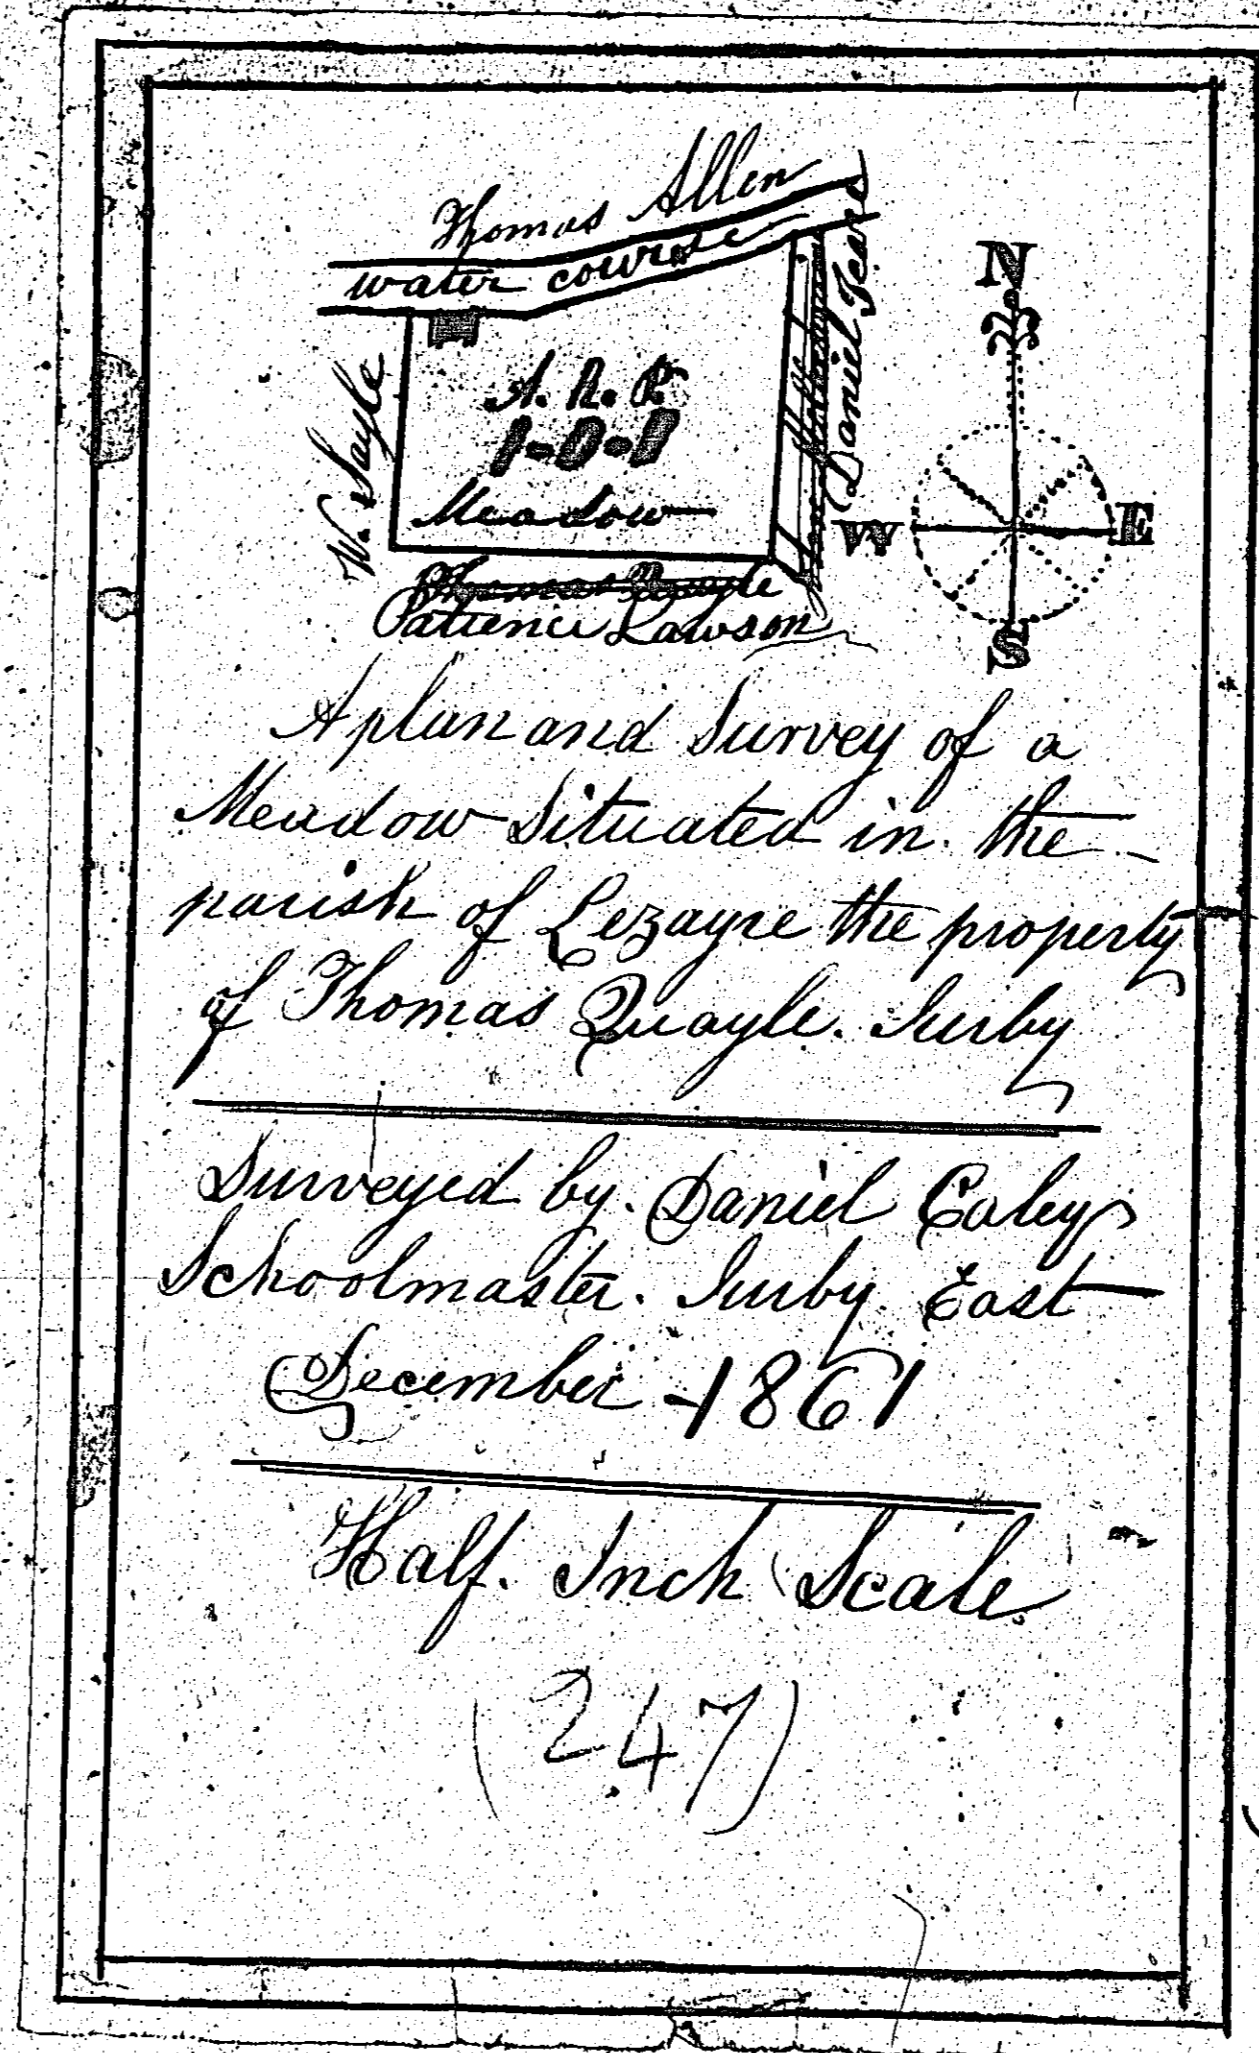 Thomas Allen
water course
W. Sayle
A. R. P.
1-0-1
Meadow
Daniel Teare
Thomas Quayle
Patience Lawson
N
W
E
S
A plan and Survey of a
Meadow Situated in the
parish of Lezayre the property
of Thomas Quayle. Jurby
Surveyed by. Daniel Caley
Schoolmaster. Jurby East
December 1861
Half. Inch Scale
(247)